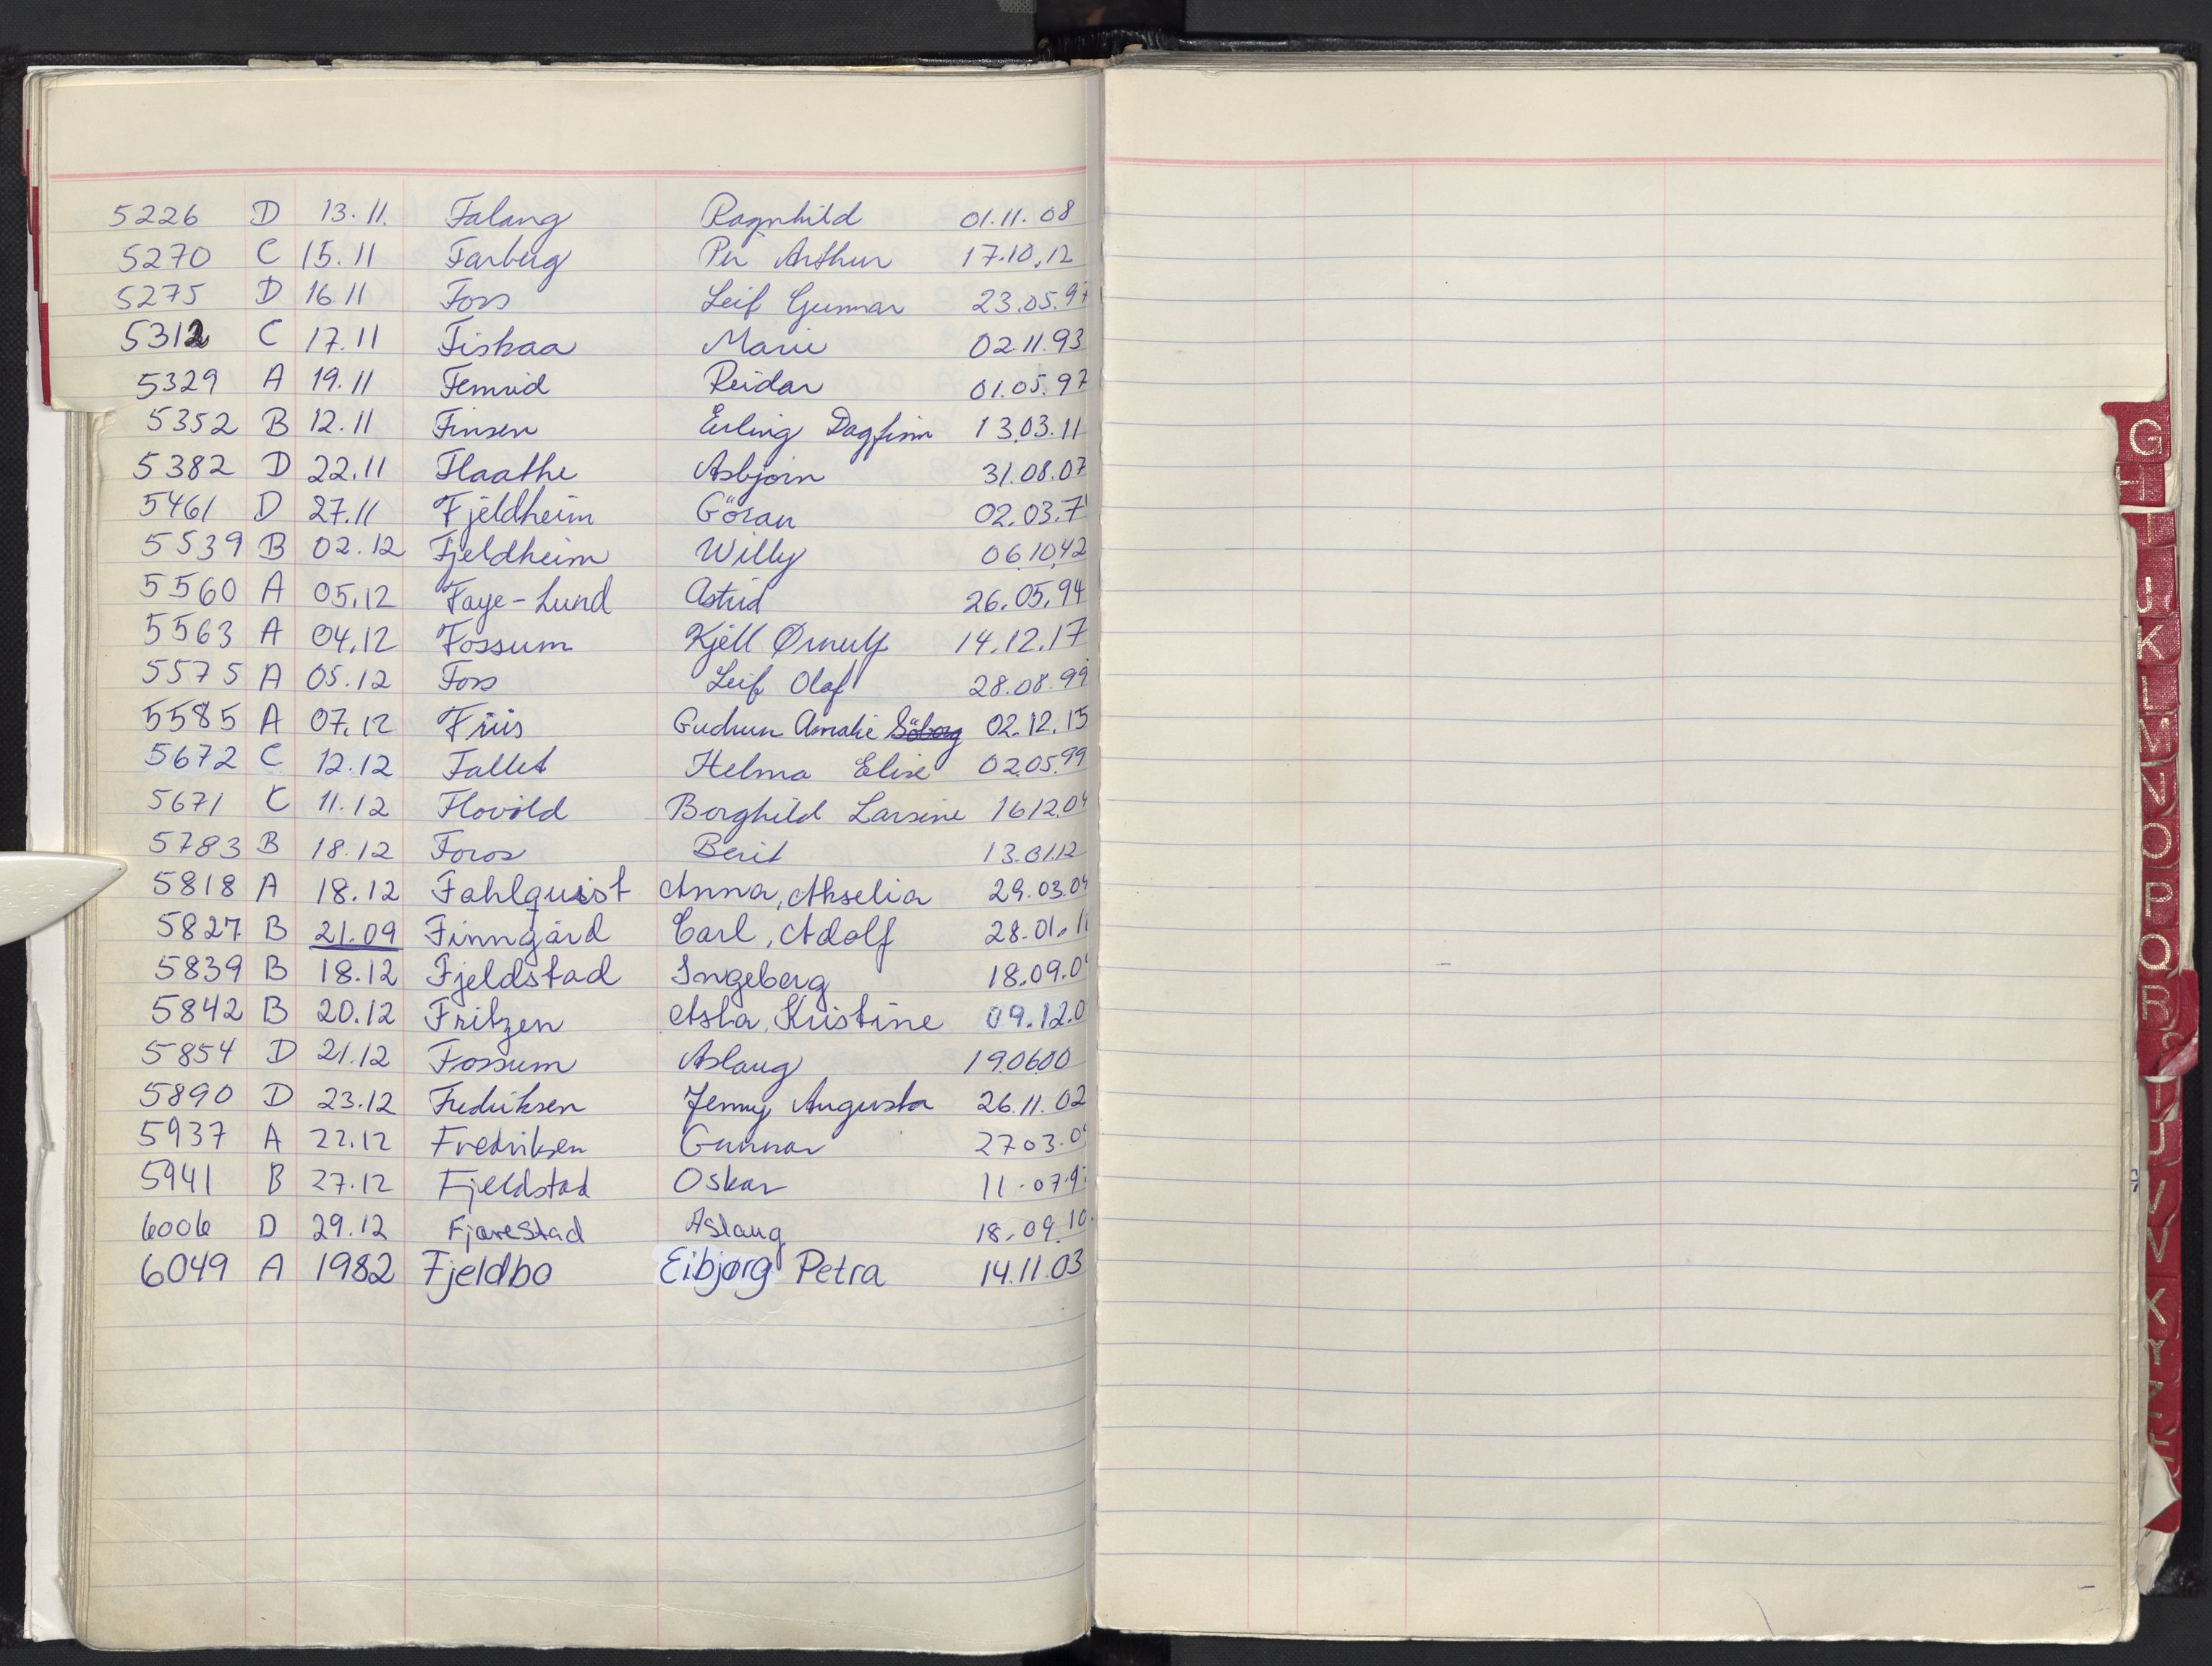 5226 D 13.11. Falang Ragnhild 01.11.08
5270 C 15.11 Farberg Per Arthur 17.10.12
5275 D 16.11 Foss Leif Gunnar 23.05.97
5312 C 17.11 Fiskaa Marie 02.11.93
5329 A 19.11 Femrid Reidar 01.05.97
5352 B 12.11 Finsen Erling Dagfinn 13.03.11
5382 D 22.11 Flaathe Asbjørn 31.08.07
5461 D 27.11 Fjeldheim Göran 02.03.7
5539 B 02.12 Fjeldheim Willy 06.10.42
5560 A 05.12 Faye-Lund Astrid 26.05.94
5563 A 04.12 Fossum Kjell Ørnulf 14.12.17
5575 A 05.12 Foss Leif Olaf 28.08.99
5585 A 07.12 Friis Gudrun Amalie Söberg 02.12.15
5672 C 12.12 Fallet Helma Elise 02.05.99
5671 C 11.12 Flovold Borghild Larsine 1612.04
5783 B 18.12 Foros Berit 13.01.12
5818 A 18.12 Fahlquist Anna, Akselia 29.03.04
5827 B 21.09 Finngård Carl, Adolf 28.01.11
5839 B 18.12 Fjeldstad Ingeberg 18.09.0
5842 B 20.12 Fritzen Asta, Kristine 09.12.0
5854 D 21.12 Fossum Aslaug 190600
5890 D 23.12 Fredriksen Jenny Augusta 26.11.02
5937 A 22.12 Fredriksen Gunnar 2703.0
5941 B 27.12 Fjeldstad Oskar 11.07.9
6006 D 29.12 Fjærestad Aslaug 18.09.10.
6049 A 1982 Fjeldbo Eibjørg Petra 14.11.03
G
H
I
J
K
L
M
N
O
P
Q
R
T
U
V
W
X
Y